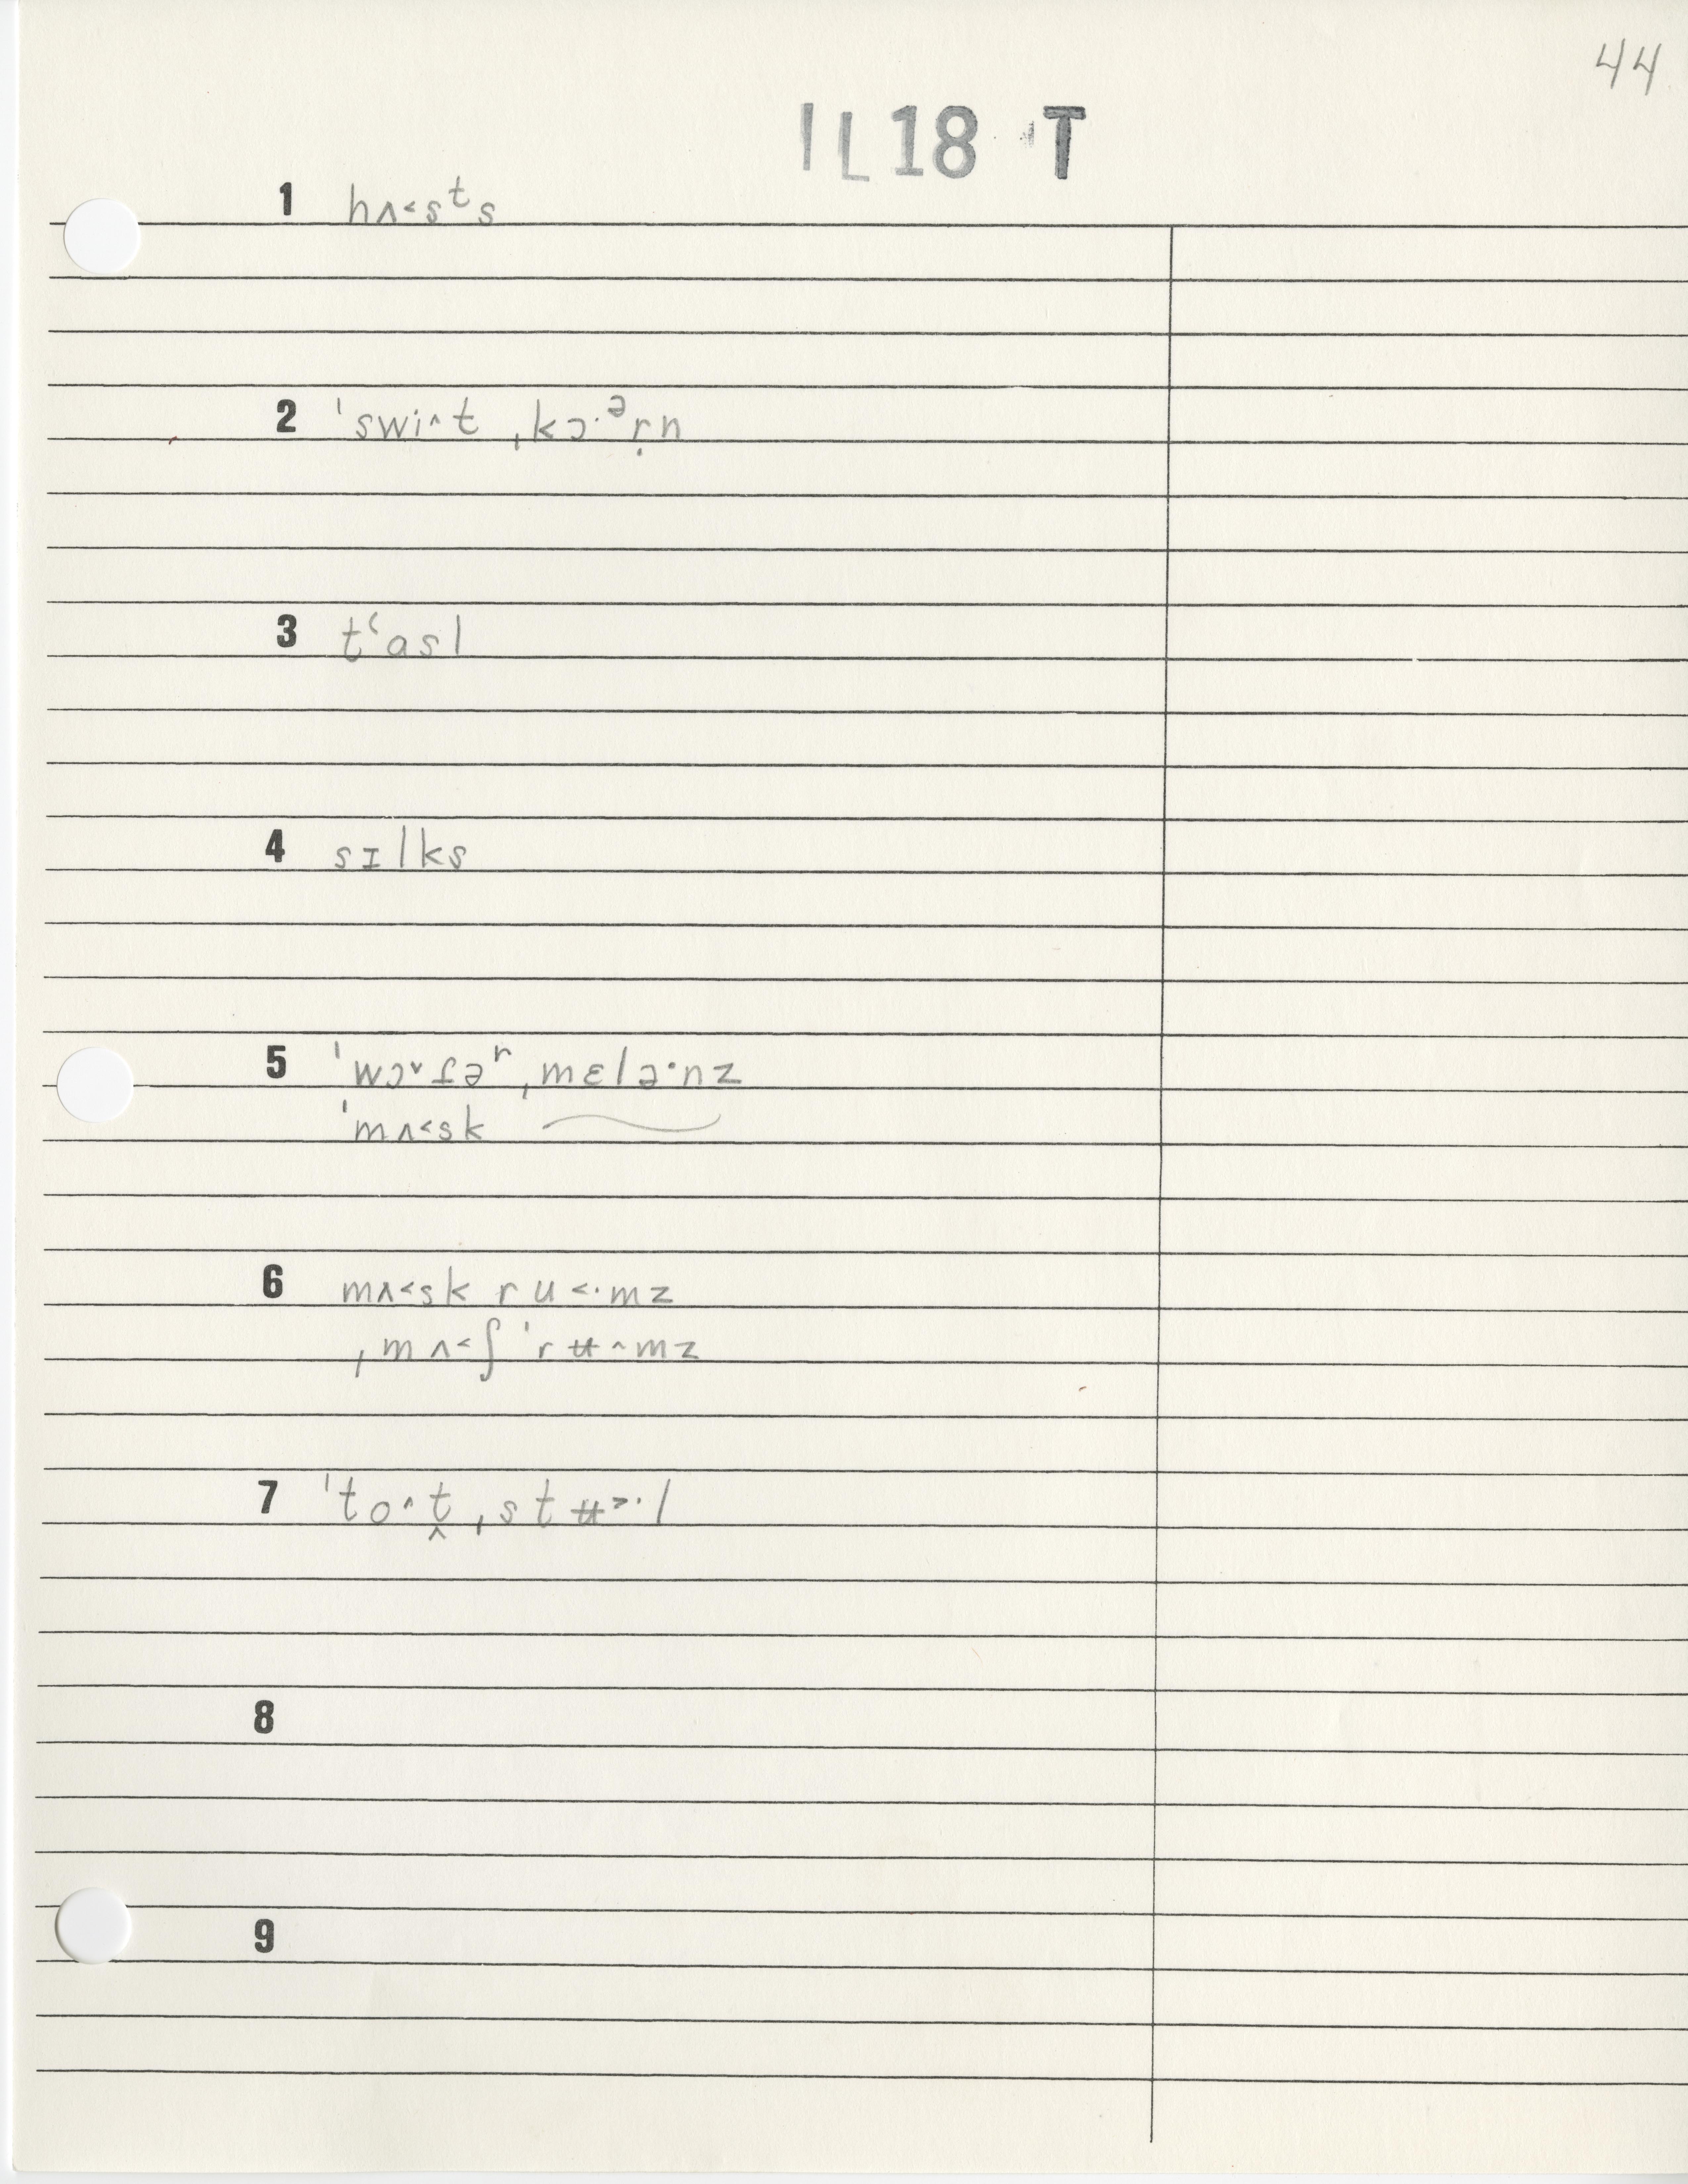 44
IL18 T
1 hʌ˂sᵗs
2 ˈswi˄t ˌkɔ·ᵊṛn
3 tʻasl
4 sɪlks
5 ˈwɔ˅ɾəʳˌmɛlə·nz
ˈmʌ˂sk
6 mʌ˂sk ru˂·mz
ˌmʌ˂ʃ ˈrʉ˄mz
7 ˈto˄t̬ ˌstʉ˃·l
8
9